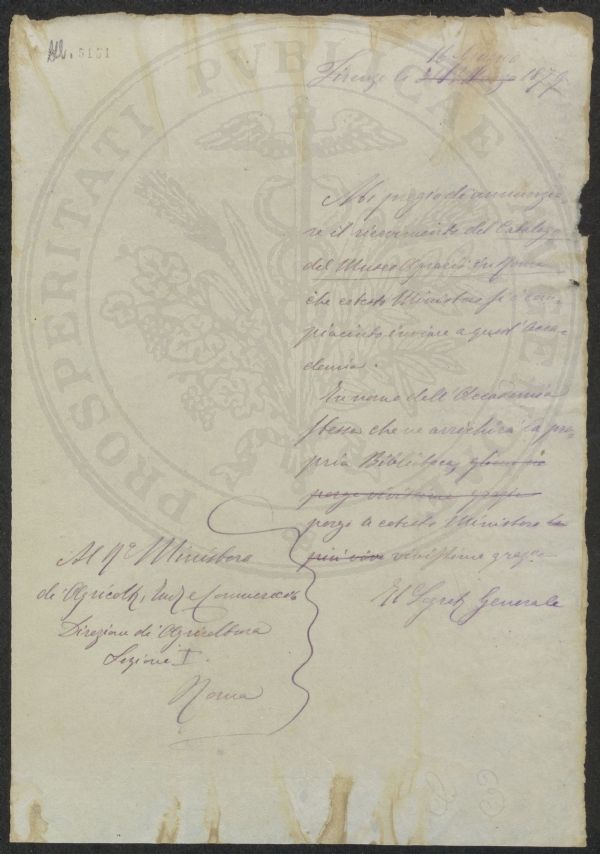 All. 5151
PROSPERITATI PVBLICAE
Firenze li 16 Giugno 1879
Mi pregio di annunzia-
re il ricevimento del Catalogo
del Museo Agrario in Roma
che cotesto Ministero si è com-
piaciuto inviare a quest'Acca-
demia.
In nome dell'Accademia
stessa che ne arrichirà la pro-
pria Biblioteca,
porge vivissime grazie
porgo a cotesto Ministero le
più vive vivissime grazie
Il Segret Generale
Al R.º Ministero
di Agricolt, Ind e Commercio
Direzione di Agricoltura
Sezione I.
Roma